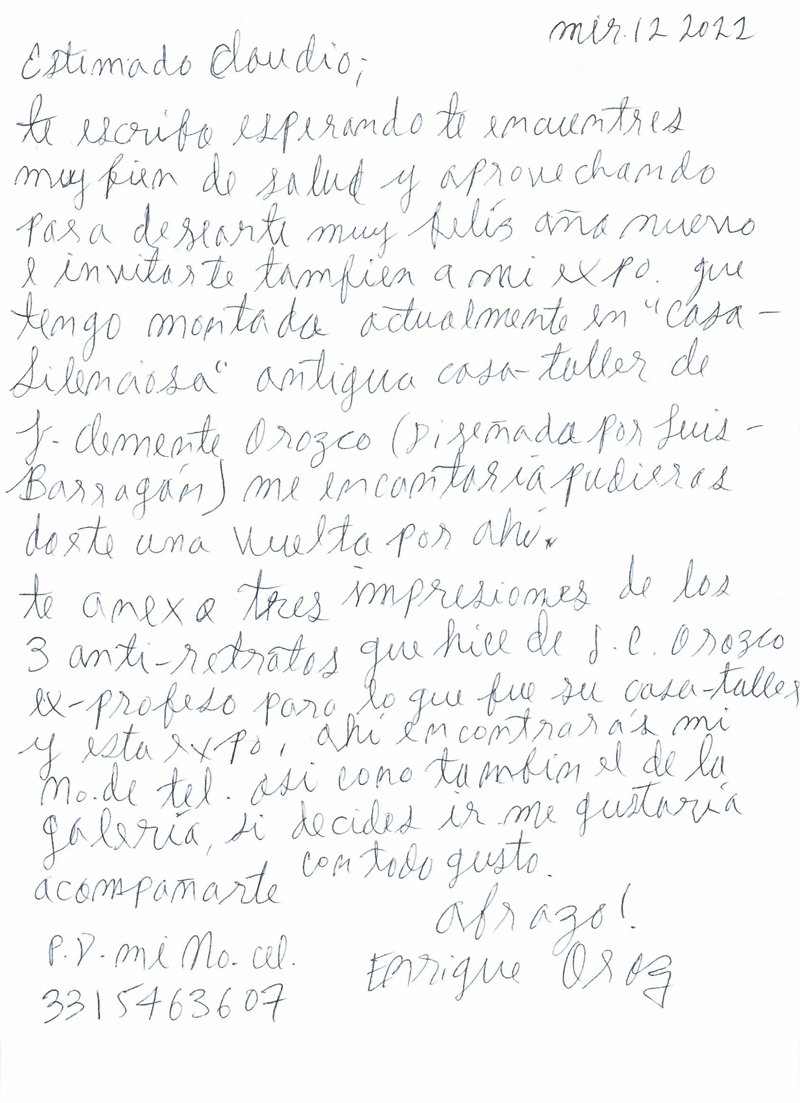 mier. 12 2022
Estimado Claudio;
te escribo esperando te encuentres
muy bien de salud y aprovechando
para desearte muy felís año nuevo
e invitarte tambien a mi expo. que
tengo montada actualmente en "Casa-
Silenciosa" antigua casa-taller de
J. Clemente Orozco (Diseñada por Luis-
Barragán) me encantaría pudieras
darte una vuelta por ahí.
te anexo tres impresiones de los
3 anti-retratos que hice de J. C. Orozco
ex-profeso para lo que fue su casa-taller
y esta expo, ahí encontrarás mi
No. de tel. asi como tambin el de la
galería, si decides ir me gustaría
acompañarte con todo gusto.
abrazo!
Enrique Oroz
P.D. mi No. cel.
3315463607